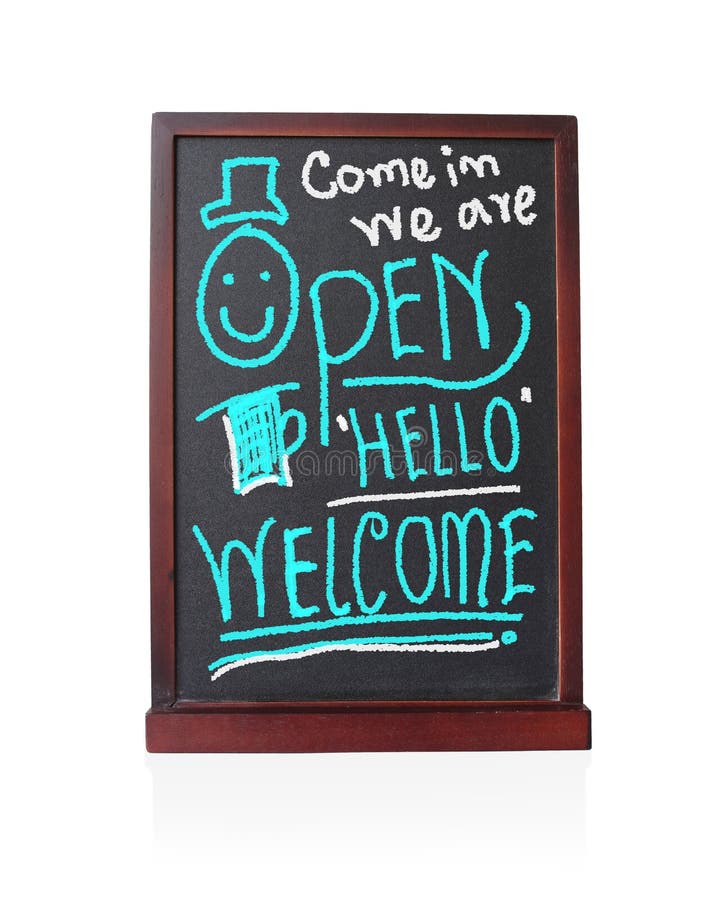 Come in
we are
OPEN
"HELLO"
WELCOME
dreamstime